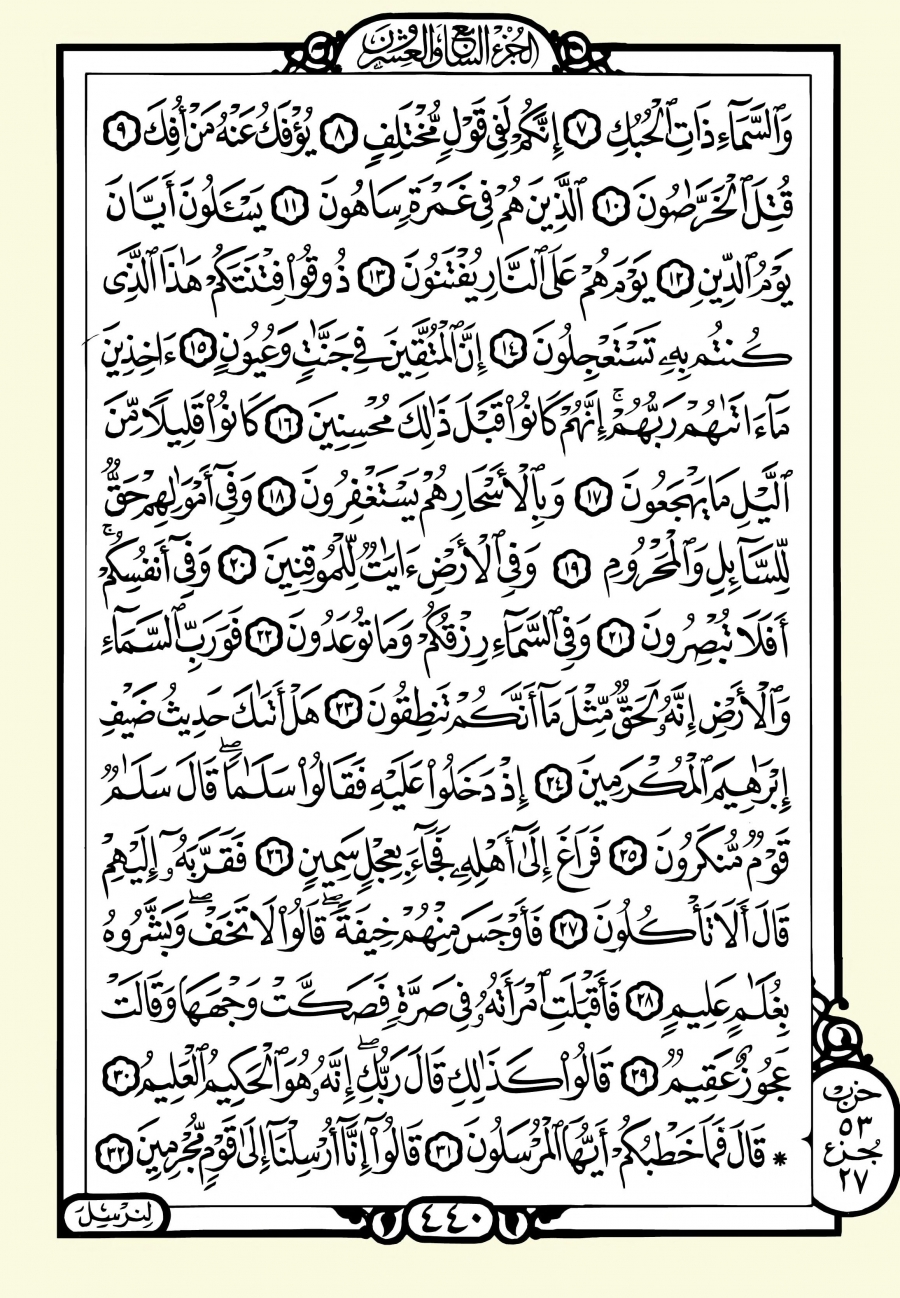 الجزء السابع والعشرون
وَٱلسَّمَآءِ ذَاتِ ٱلْحُبُكِ ٧ إِنَّكُمْ لَفِى قَوْلٍ مُّخْتَلِفٍ ٨ يُؤْفَكُ عَنْهُ مَنْ أُفِكَ ٩
قُتِلَ ٱلْخَرَّٰصُونَ ١٠ ٱلَّذِينَ هُمْ فِى غَمْرَةٍ سَاهُونَ ١١ يَسْـَٔلُونَ أَيَّانَ
يَوْمُ ٱلدِّينِ ١٢ يَوْمَ هُمْ عَلَى ٱلنَّارِ يُفْتَنُونَ ١٣ ذُوقُوا۟ فِتْنَتَكُمْ هَٰذَا ٱلَّذِى
كُنتُم بِهِۦ تَسْتَعْجِلُونَ ١٤ إِنَّ ٱلْمُتَّقِينَ فِى جَنَّٰتٍ وَعُيُونٍ ١٥ ءَاخِذِينَ
مَآ ءَاتَىٰهُمْ رَبُّهُمْ ۚ إِنَّهُمْ كَانُوا۟ قَبْلَ ذَٰلِكَ مُحْسِنِينَ ١٦ كَانُوا۟ قَلِيلًا مِّنَ
ٱلَّيْلِ مَا يَهْجَعُونَ ١٧ وَبِٱلْأَسْحَارِ هُمْ يَسْتَغْفِرُونَ ١٨ وَفِىٓ أَمْوَٰلِهِمْ حَقٌّ
لِّلسَّآئِلِ وَٱلْمَحْرُومِ ١٩ وَفِى ٱلْأَرْضِ ءَايَٰتٌ لِّلْمُوقِنِينَ ٢٠ وَفِىٓ أَنفُسِكُمْ ۚ
أَفَلَا تُبْصِرُونَ ٢١ وَفِى ٱلسَّمَآءِ رِزْقُكُمْ وَمَا تُوعَدُونَ ٢٢ فَوَرَبِّ ٱلسَّمَآءِ
وَٱلْأَرْضِ إِنَّهُۥ لَحَقٌّ مِّثْلَ مَآ أَنَّكُمْ تَنطِقُونَ ٢٣ هَلْ أَتَىٰكَ حَدِيثُ ضَيْفِ
إِبْرَٰهِيمَ ٱلْمُكْرَمِينَ ٢٤ إِذْ دَخَلُوا۟ عَلَيْهِ فَقَالُوا۟ سَلَٰمًا ۖ قَالَ سَلَٰمٌ
قَوْمٌ مُّنكَرُونَ ٢٥ فَرَاغَ إِلَىٰٓ أَهْلِهِۦ فَجَآءَ بِعِجْلٍ سَمِينٍ ٢٦ فَقَرَّبَهُۥٓ إِلَيْهِمْ
قَالَ أَلَا تَأْكُلُونَ ٢٧ فَأَوْجَسَ مِنْهُمْ خِيفَةً ۖ قَالُوا۟ لَا تَخَفْ ۖ وَبَشَّرُوهُ
بِغُلَٰمٍ عَلِيمٍ ٢٨ فَأَقْبَلَتِ ٱمْرَأَتُهُۥ فِى صَرَّةٍ فَصَكَّتْ وَجْهَهَا وَقَالَتْ
عَجُوزٌ عَقِيمٌ ٢٩ قَالُوا۟ كَذَٰلِكِ قَالَ رَبُّكِ ۖ إِنَّهُۥ هُوَ ٱلْحَكِيمُ ٱلْعَلِيمُ ٣٠
* قَالَ فَمَا خَطْبُكُمْ أَيُّهَا ٱلْمُرْسَلُونَ ٣١ قَالُوٓا۟ إِنَّآ أُرْسِلْنَآ إِلَىٰ قَوْمٍ مُّجْرِمِينَ ٣٢
حزب
٥٣
جزء
٢٧
لنرسل
٤٤٠